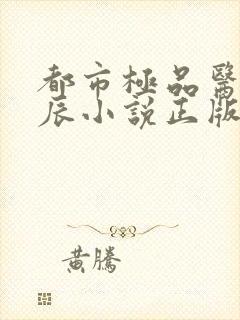 都市極品醫
辰小說正版
黃騰